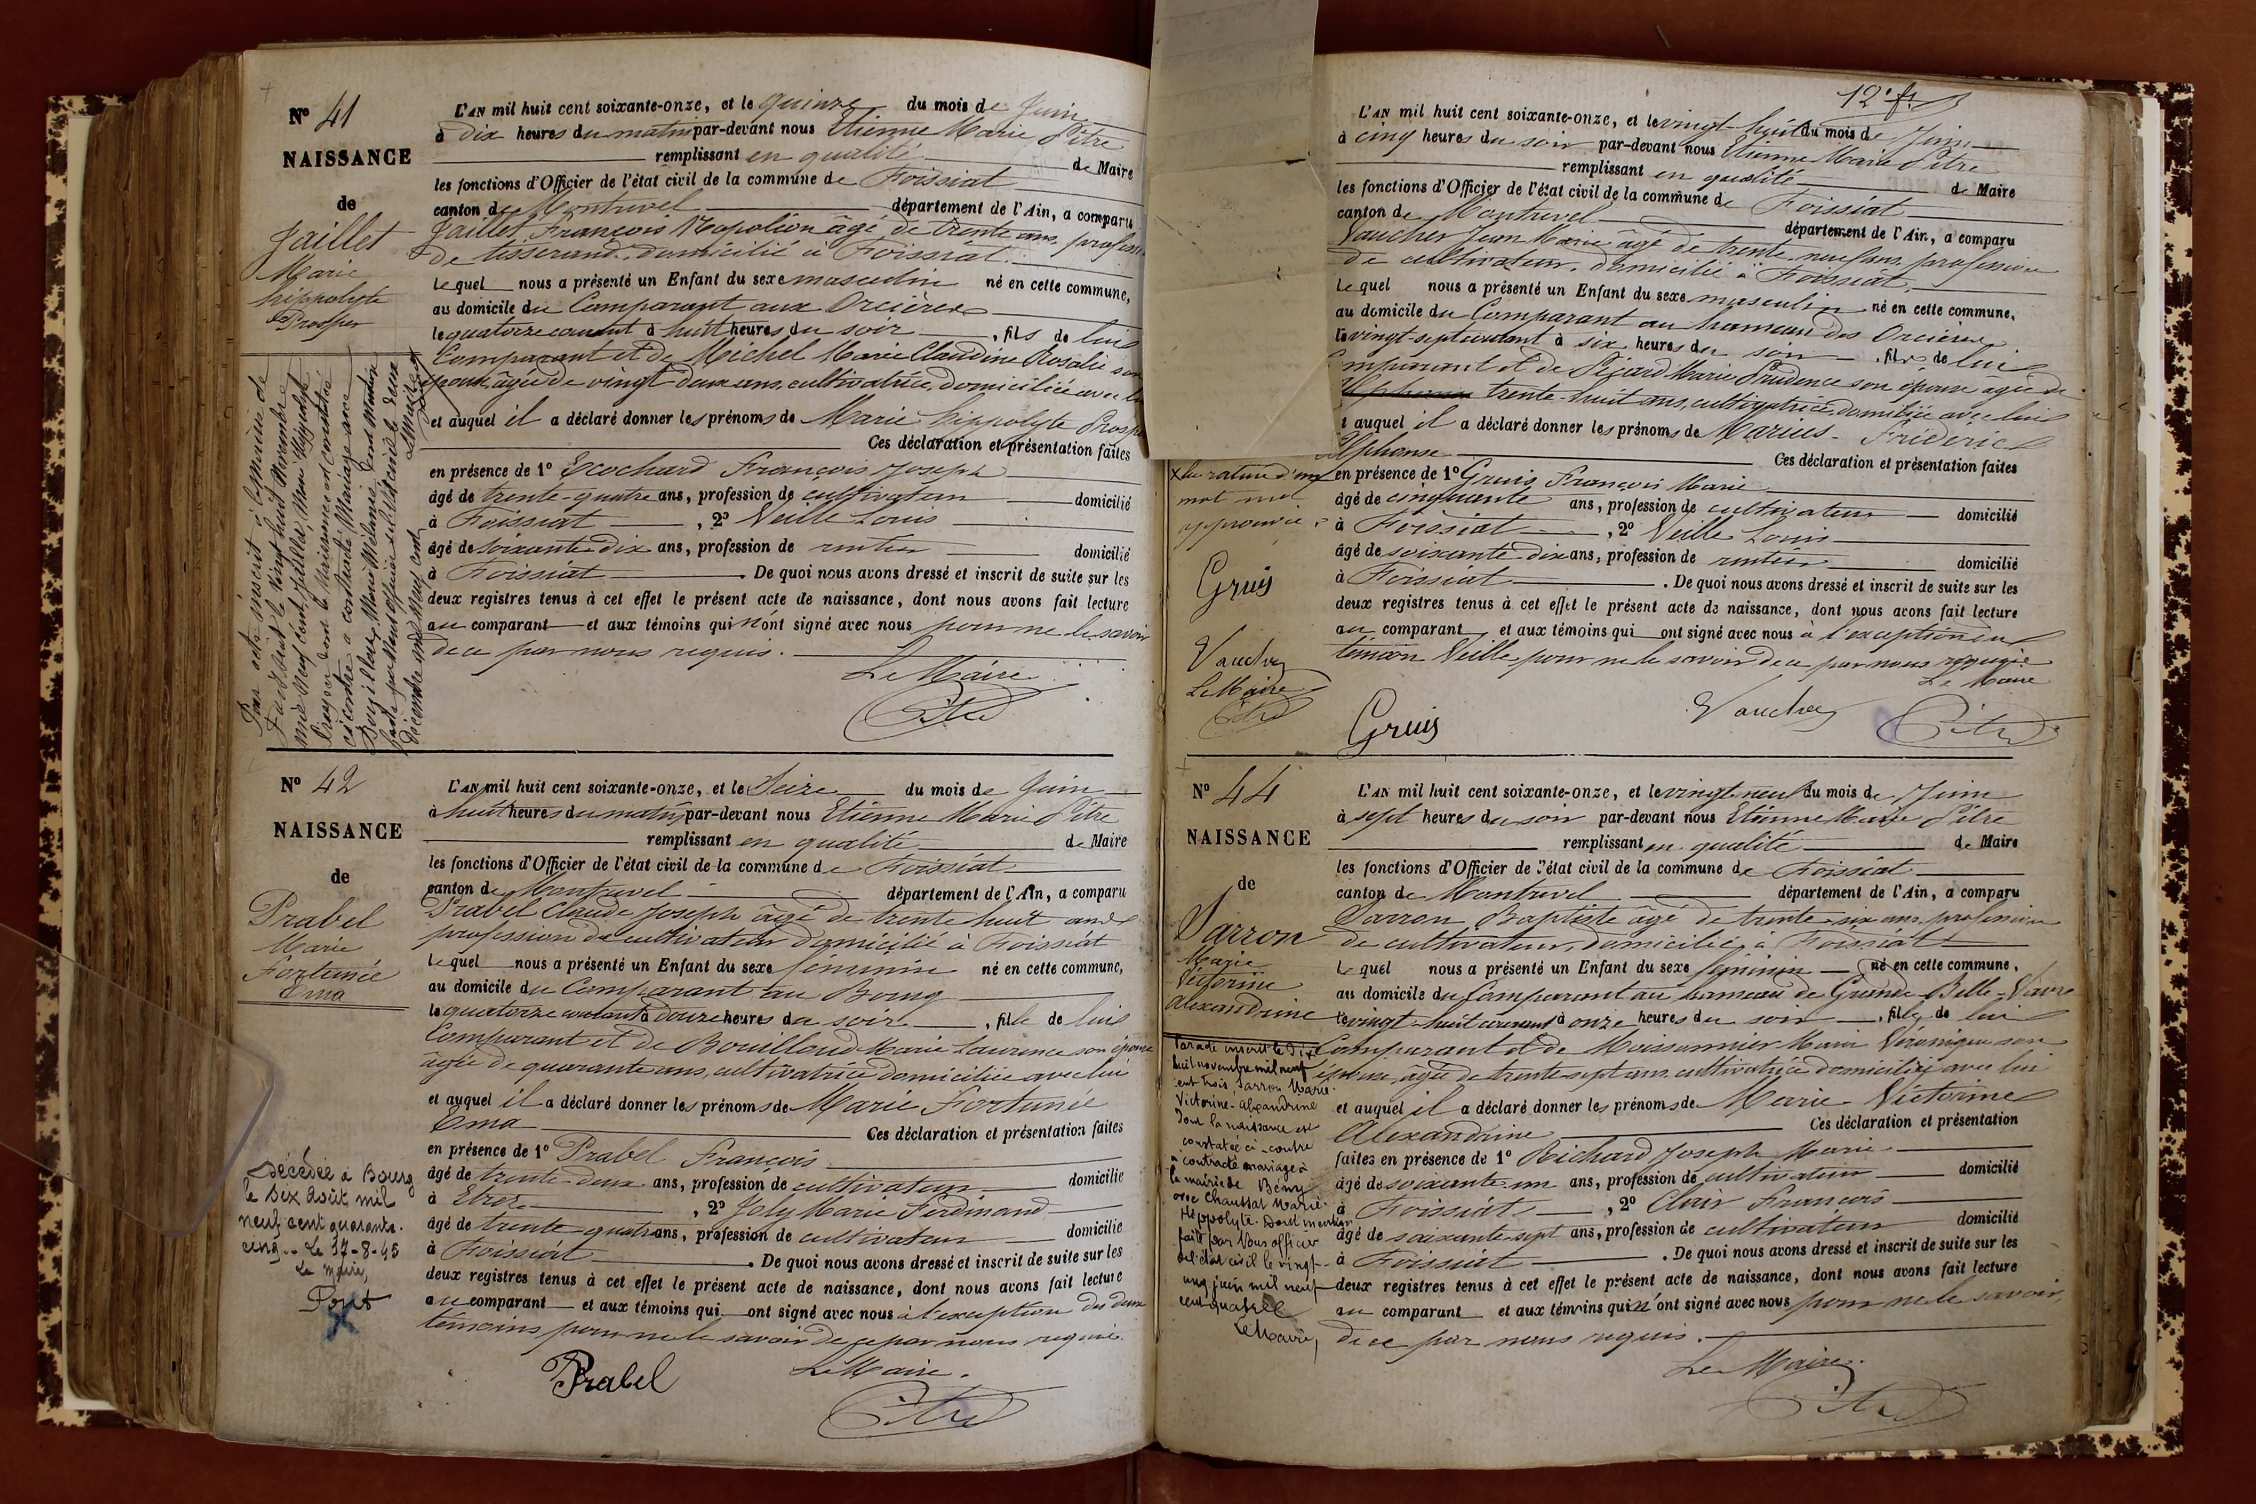 Nº 41
NAISSANCE
de
Jaillet
Marie
hippolyte
Prosper
L'AN mil huit cent soixante-onze, et le quinze du mois de Juin
à dix heures du matin par-devant nous Etienne Marie Pitre
remplissant en qualité de Maire
les fonctions d'Officier de l'état civil de la commune de Foissiat
canton de Montrevel département de l'Ain, a comparu
Jaillet François Napoléon âgé de trente ans, profession
de tisserand, domicilié à Foissiat
Lequel nous a présenté un Enfant du sexe masculin né en cette commune,
au domicile du Comparant aux Orcières
le quatorze courant à huit heures du soir, fils de lui
Comparant et de Michel Marie Claudine Rosalie son
épouse, âgée de vingt deux ans, cultivatrice, domiciliée avec lui
et auquel il a déclaré donner les prénoms de Marie hippolyte Prosper
Ces déclaration et présentation faites
en présence de 1º Ecochard François Joseph
âgé de trente-quatre ans, profession de cultivateur domicilié
à Foissiat, 2º Veille Louis
âgé de soixante-dix ans, profession de rentier domicilié
à Foissiat. De quoi nous avons dressé et inscrit de suite sur les
deux registres tenus à cet effet le présent acte de naissance, dont nous avons fait lecture
au comparant et aux témoins qui n'ont signé avec nous pour ne le savoir
de ce par nous requis.
Le Maire
Pitre
Par acte inscrit à
le vingt huit Novembre
mil neuf cent, Jaillet, Marie Hippolyte
Prosper dont la Naissance est constatée
ci contre a contracté Mariage avec
Marie Mélanie. Dont Mention
faite par Nous officier de l'Etat civil le deux
Décembre mil Neuf cent
Le Maire
Nº 42
NAISSANCE
de
Prabel
Marie
Fortunée
Ema
L'AN mil huit cent soixante-onze, et le Seize du mois de Juin
à huit heures du matin par-devant nous Etienne Marie Pitre
remplissant en qualité de Maire
les fonctions d'Officier de l'état civil de la commune de Foissiat
canton de Montrevel département de l'Ain, a comparu
Prabel Claude Joseph âgé de trente huit ans
profession de cultivateur domicilié à Foissiat
Lequel nous a présenté un Enfant du sexe féminin né en cette commune,
au domicile du Comparant au Bourg
le quatorze courant à douze heures du soir, fille de lui
Comparant et de Bouilloud Marie Laurence son épouse
âgée de quarante ans, cultivatrice domiciliée avec lui
et auquel il a déclaré donner les prénoms de Marie Fortunée
Ema Ces déclaration et présentation faites
en présence de 1º Prabel François
âgé de trente-deux ans, profession de cultivateur domicilié
à Etrez, 2º Joly Marie Ferdinand
âgé de trente-quatre ans, profession de cultivateur domicilié
à Foissiat. De quoi nous avons dressé et inscrit de suite sur les
deux registres tenus à cet effet le présent acte de naissance, dont nous avons fait lecture
au comparant et aux témoins qui ont signé avec nous à l'exception des deux
témoins pour ne le savoir de ce par nous requis.
Prabel
Le Maire.
Pitre
Décédée à Bourg
le Six Août mil
neuf cent quarante-
cinq. Le 17-8-45
Le Maire,
Pont
12e ft
L'AN mil huit cent soixante-onze, et le vingt-huit du mois de Juin
à cinq heures du soir par-devant nous Etienne Marie Pitre
remplissant en qualité de Maire
les fonctions d'Officier de l'état civil de la commune de Foissiat
canton de Montrevel département de l'Ain, a comparu
Vaucher Jean Marie âgé de trente-neuf ans, profession
de cultivateur, domicilié à Foissiat,
Lequel nous a présenté un Enfant du sexe masculin né en cette commune,
au domicile du Comparant au hameau des Orcières
le vingt-sept courant à six heures du soir, fils de lui
Comparant et de Pijard Marie Prudence son épouse agée de
trente-huit ans, cultivatrice, domiciliée avec lui
et auquel il a déclaré donner les prénoms de Marius-Frédéric
Alphonse Ces déclaration et présentation faites
en présence de 1º Gruis François Marie
âgé de cinquante ans, profession de cultivateur domicilié
à Foissiat, 2º Veille Louis
âgé de soixante-dix ans, profession de rentier domicilié
à Foissiat. De quoi nous avons dressé et inscrit de suite sur les
deux registres tenus à cet effet le présent acte de naissance, dont nous avons fait lecture
au comparant et aux témoins qui ont signé avec nous à l'exception du
témoin Veille pour ne le savoir de ce par nous requis
Le Maire
Gruis
Vaucher
Pitre
X la rature d'un
mot nul
approuvée
Gruis
Vaucher
Le Maire
Pitre
Nº 44
NAISSANCE
de
Sarron
Marie
Victorine
Alexandrine
L'AN mil huit cent soixante-onze, et le vingt-neuf du mois de Juin
à sept heures du soir par-devant nous Etienne Marie Pitre
remplissant en qualité de Maire
les fonctions d'Officier de l'état civil de la commune de Foissiat
canton de Montrevel département de l'Ain, a comparu
Sarron Baptiste âgé de trente-six ans, profession
de cultivateur, domicilié à Foissiat
Lequel nous a présenté un Enfant du sexe féminin né en cette commune,
au domicile du Comparant au hameau de Grande Belle-Vavre
le vingt-huit courant à onze heures du soir, fille de lui
Comparant et de Moissonnier Marie Véronique son
épouse, âgée de trente-sept ans, cultivatrice domiciliée avec lui
et auquel il a déclaré donner les prénoms de Marie-Victorine
Alexandrine Ces déclaration et présentation
faites en présence de 1º Richard Joseph Marie
âgé de soixante-un ans, profession de cultivateur domicilié
à Foissiat, 2º Clair François
âgé de soixante-sept ans, profession de cultivateur domicilié
à Foissiat. De quoi nous avons dressé et inscrit de suite sur les
deux registres tenus à cet effet le présent acte de naissance, dont nous avons fait lecture
au comparant et aux témoins qui n'ont signé avec nous pour ne le savoir
de ce par nous requis.
Le Maire
Pitre
Par acte inscrit le dix
huit novembre mil neuf
cent trois Sarron Marie-
Victorine-Alexandrine
dont la naissance est
constatée ci-contre
a contracté mariage à
la mairie de Bény
avec Chaussat Marie-
Hippolyte. Dont mention
faite par Nous officier
de l'état civil le vingt-
un juin mil neuf
cent quatre
Le Maire,